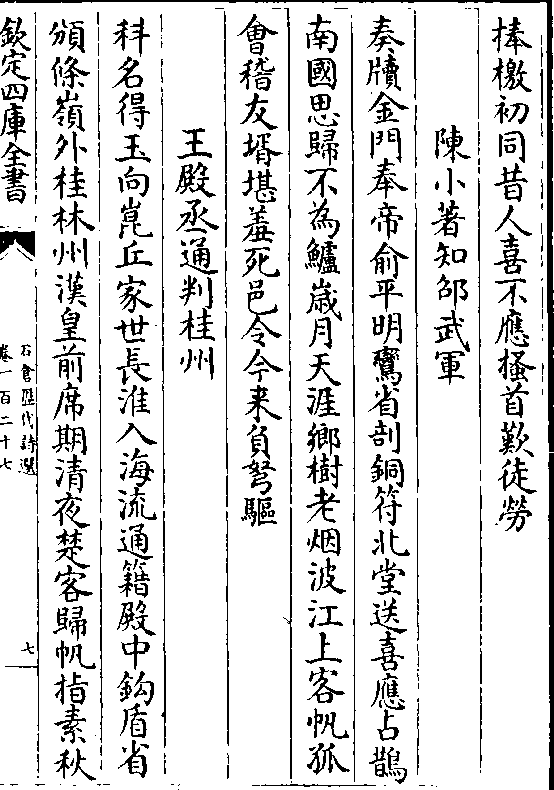 捧檄初同昔人喜不應搔首歎徒勞
陳小著知邵武軍
奏牘金門奉帝俞平明鸞省剖銅符北堂送喜應占鵲
南國思歸不為鱸嵗月天涯鄉樹老烟波江上客帆孤
㑹稽友壻堪羞死邑令今来負弩驅
王殿丞通判桂州
科名得玉向崑丘家世長淮入海流通籍殿中鈎盾省
頒條嶺外桂林州漢皇前席期清夜楚客歸帆指素秋
欽定四庫全書
石倉歴代詩選
卷一百二十七
七